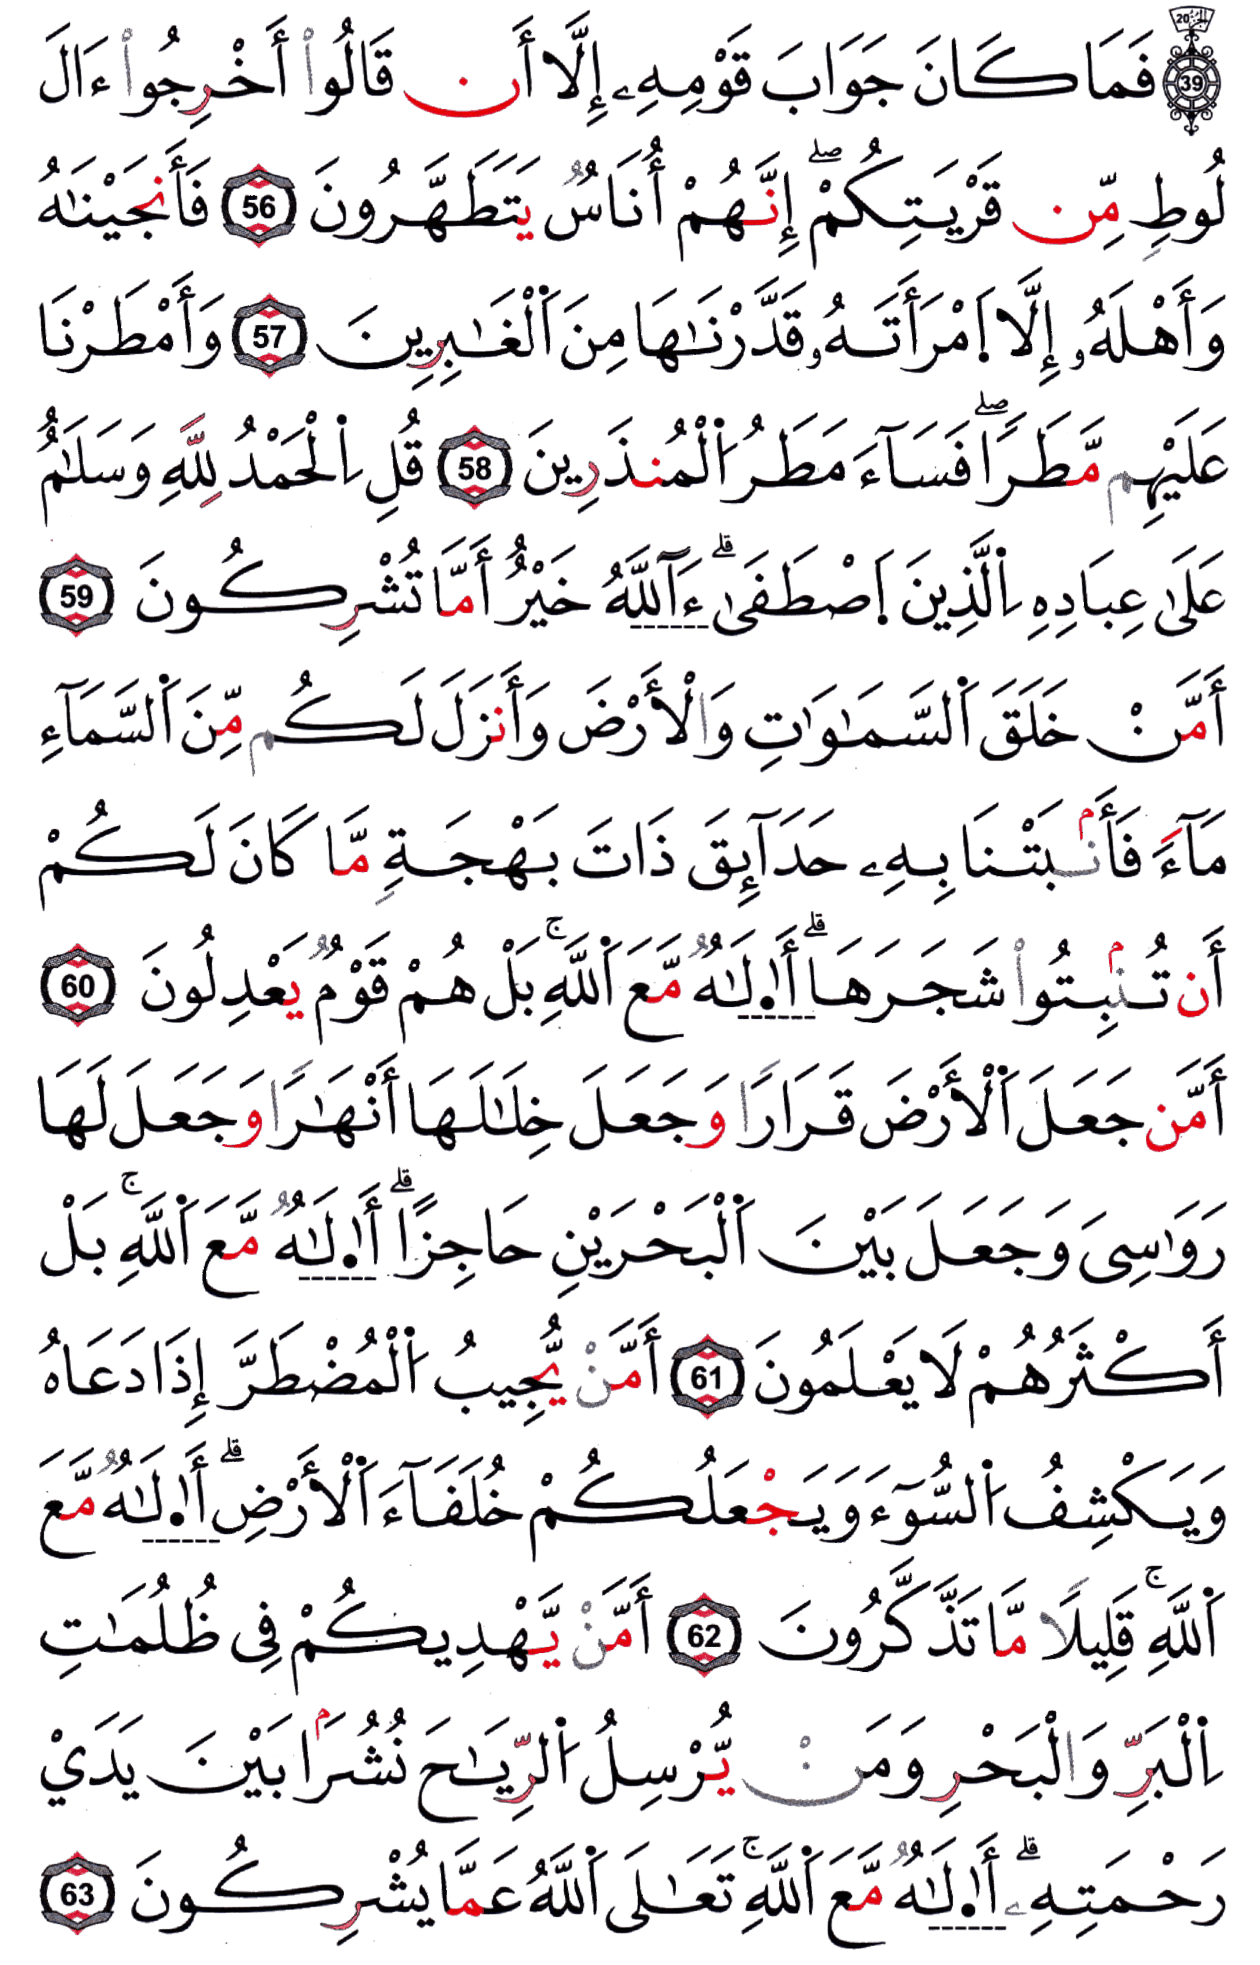 20 39 فَمَا كَانَ جَوَابَ قَوْمِهِۦ إِلَّا أَن قَالُوا۟ أَخْرِجُوا۟ ءَالَ
لُوطٍ مِّن قَرْيَتِكُمْ ۖ إِنَّهُمْ أُنَاسٌ يَتَطَهَّرُونَ 56 فَأَنجَيْنَـٰهُ
وَأَهْلَهُۥ إِلَّا اَ۪مْرَأَتَهُۥ قَدَّرْنَـٰهَا مِنَ اَ۬لْغَـٰبِرِينَ 57 وَأَمْطَرْنَا
عَلَيْهِم مَّطَرًا ۖ فَسَآءَ مَطَرُ اُ۬لْمُنذَرِينَ 58 قُلِ اِ۬لْحَمْدُ لِلَّهِ وَسَلَـٰمٌ
عَلَىٰ عِبَادِهِ اِ۬لَّذِينَ اَ۪صْطَفَىٰٓ ۗ ءَآللَّهُ خَيْرٌ أَمَّا تُشْرِكُونَ 59
أَمَّنْ خَلَقَ اَ۬لسَّمَـٰوَٰتِ وَالْأَرْضَ وَأَنزَلَ لَكُم مِّنَ اَ۬لسَّمَآءِ
مَآءً فَأَنۢبَتْنَا بِهِۦ حَدَآئِقَ ذَاتَ بَهْجَةٍ مَّا كَانَ لَكُمْ
أَن تُنۢبِتُوا۟ شَجَرَهَا ۗ أَا۟لَـٰهٌ مَّعَ اَ۬للَّهِ ۚ بَلْ هُمْ قَوْمٌ يَعْدِلُونَ 60
أَمَّن جَعَلَ اَ۬لْأَرْضَ قَرَارًا وَجَعَلَ خِلَـٰلَهَا أَنْهَـٰرًا وَجَعَلَ لَهَا
رَوَٰسِىَ وَجَعَلَ بَيْنَ اَ۬لْبَحْرَيْنِ حَاجِزًا ۗ أَا۟لَـٰهٌ مَّعَ اَ۬للَّهِ ۚ بَلْ
أَكْثَرُهُمْ لَا يَعْلَمُونَ 61 أَمَّنْ يُّجِيبُ اُ۬لْمُضْطَرَّ إِذَا دَعَاهُ
وَيَكْشِفُ اُ۬لسُّوٓءَ وَيَجْعَلُكُمْ خُلَفَآءَ اَ۬لْأَرْضِ ۗ أَا۟لَـٰهٌ مَّعَ
اَ۬للَّهِ ۚ قَلِيلًا مَّا تَذَّكَّرُونَ 62 أَمَّنْ يَّهْدِيكُمْ فِى ظُلُمَـٰتِ
اِ۬لْبَرِّ وَالْبَحْرِ وَمَنْ يُّرْسِلُ اُ۬لرِّيَـٰحَ نُشُرَۢا بَيْنَ يَدَيْ
رَحْمَتِهِۦ ۗ أَا۟لَـٰهٌ مَّعَ اَ۬للَّهِ ۚ تَعَـٰلَى اَ۬للَّهُ عَمَّا يُشْرِكُونَ 63